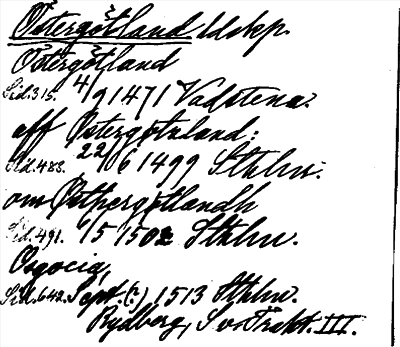 Östergötland ldskp.
Östergötland
Sid. 315. 4/9 1471 Vadstena.
aff Østergötnland:
Sid. 483. 22/6 1499 Sthlm.
om Østhergötlandh
Sid. 491. 1/5 1502 Sthlm.
Osgocia,
Sid. 642. Sept. (?) 1513 Sthlm.
Rydberg, Sv. Trakt. III.